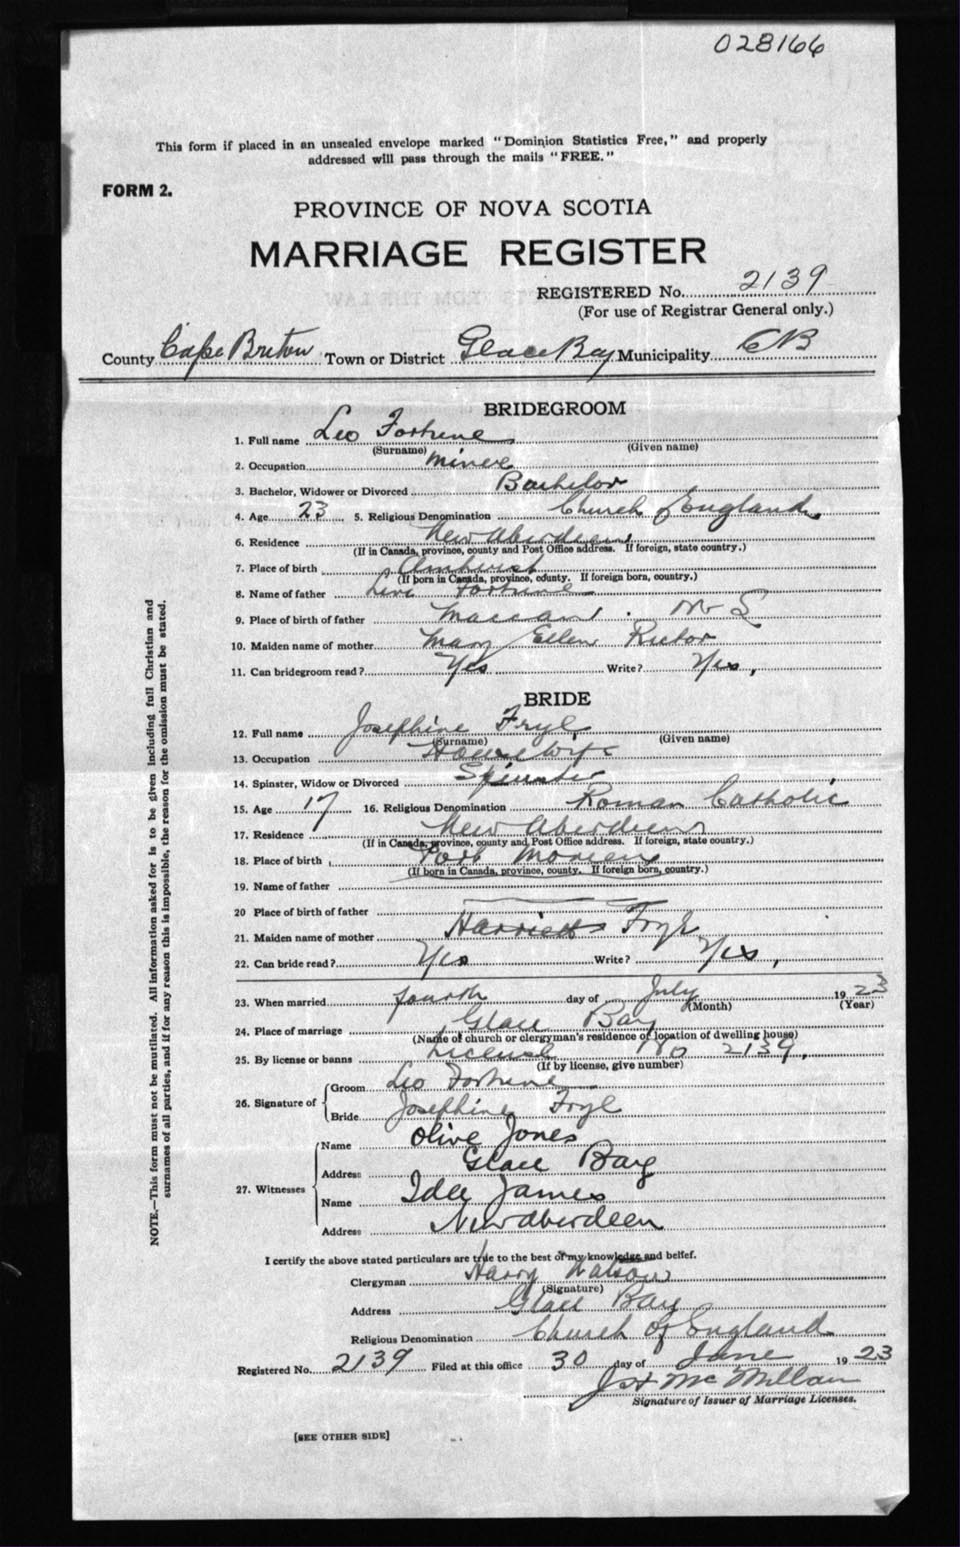 028166
This form if placed in an unsealed envelope marked "Dominion Statistics Free," and properly
addressed will pass through the mails "FREE."
FORM 2.
PROVINCE OF NOVA SCOTIA
MARRIAGE REGISTER
REGISTERED No. 2139
(For use of Registrar General only.)
County Cape Breton Town or District Glace Bay Municipality CB
BRIDEGROOM
1. Full name Leo Fortune
(Surname) (Given name)
2. Occupation Miner
3. Bachelor, Widower or Divorced Bachelor
4. Age 23 5. Religious Denomination Church of England
6. Residence New Aberdeen
(If in Canada, province, county and Post Office address. If foreign, state country.)
7. Place of birth Amherst
(If born in Canada, province, county. If foreign born, country.)
8. Name of father Fortune
9. Place of birth of father Maccan N S
10. Maiden name of mother Mary Ellen Rector
11. Can bridegroom read? Yes Write? Yes,
BRIDE
12. Full name Josephine Frye
(Surname) (Given name)
13. Occupation House wife
14. Spinster, Widow or Divorced Spinster
15. Age 17 16. Religious Denomination Roman Catholic
17. Residence New Aberdeen
(If in Canada, province, county and Post Office address. If foreign, state country.)
18. Place of birth Port Morien
(If born in Canada, province, county. If foreign born, country.)
19. Name of father
20 Place of birth of father
21. Maiden name of mother Frye
22. Can bride read? Yes Write? Yes,
23. When married fourth day of July 1923
(Month) (Year)
24. Place of marriage Glace Bay
(Name of church or clergyman's residence or location of dwelling house)
25. By license or banns License No 2139,
(If by license, give number)
26. Signature of Groom Leo Fortune
Bride Josephine Frye
27. Witnesses Name Olive Jones
Address Glace Bay
Name Ida James
Address New Aberdeen
I certify the above stated particulars are true to the best of my knowledge and belief.
Clergyman Harry Watson
(Signature)
Address Glace Bay
Religious Denomination Church of England
Registered No. 2139 Filed at this office 30 day of June 1923
McMillan
Signature of Issuer of Marriage Licenses.
[SEE OTHER SIDE]
NOTE.—This form must not be mutilated. All information asked for is to be given including full Christian and
surnames of all parties, and if for any reason this is impossible, the reason for the omission must be stated.